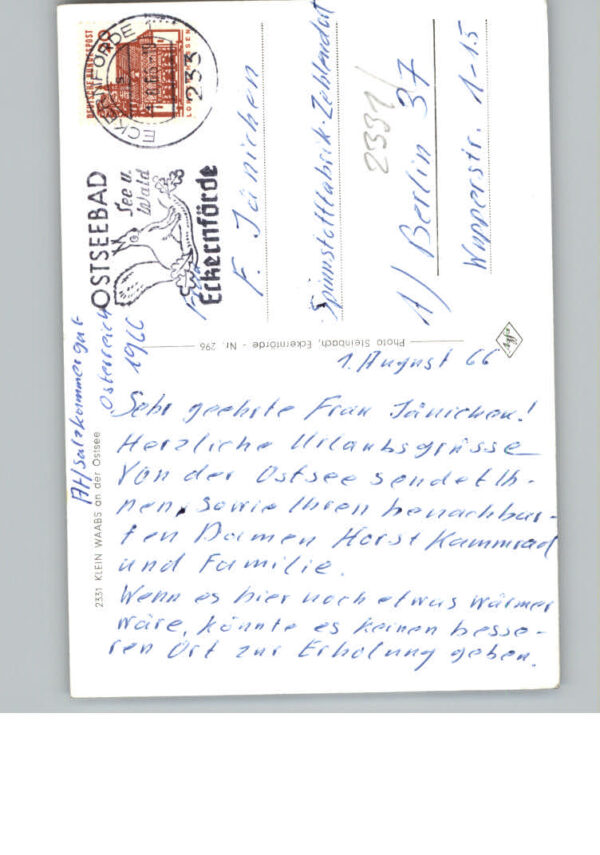 DEUTSCHE BUNDESPOST
ECKERNFÖRDE 1
233
OSTSEEBAD
See u.
Wald
Eckernförde
F. Jänichen
Spinnstoffabrik-Zehlendorf
2331/
1/ Berlin 37
Wupperstr. 1-15
AH/Salzkammergut
Österreich
1966
Photo Steinbach, Eckernförde - Nr. 296
2331 KLEIN WAABS an der Ostsee
1. August 66
Sehr geehrte Frau Jänichen!
Herzliche Urlaubsgrüsse
von der Ostsee sendet Ih-
nen, sowie Ihren benachbar-
ten Damen Horst Kammrad
und Familie.
Wenn es hier noch etwas wärmer
wäre, könnte es keinen besse-
ren Ort zur Erholung geben.